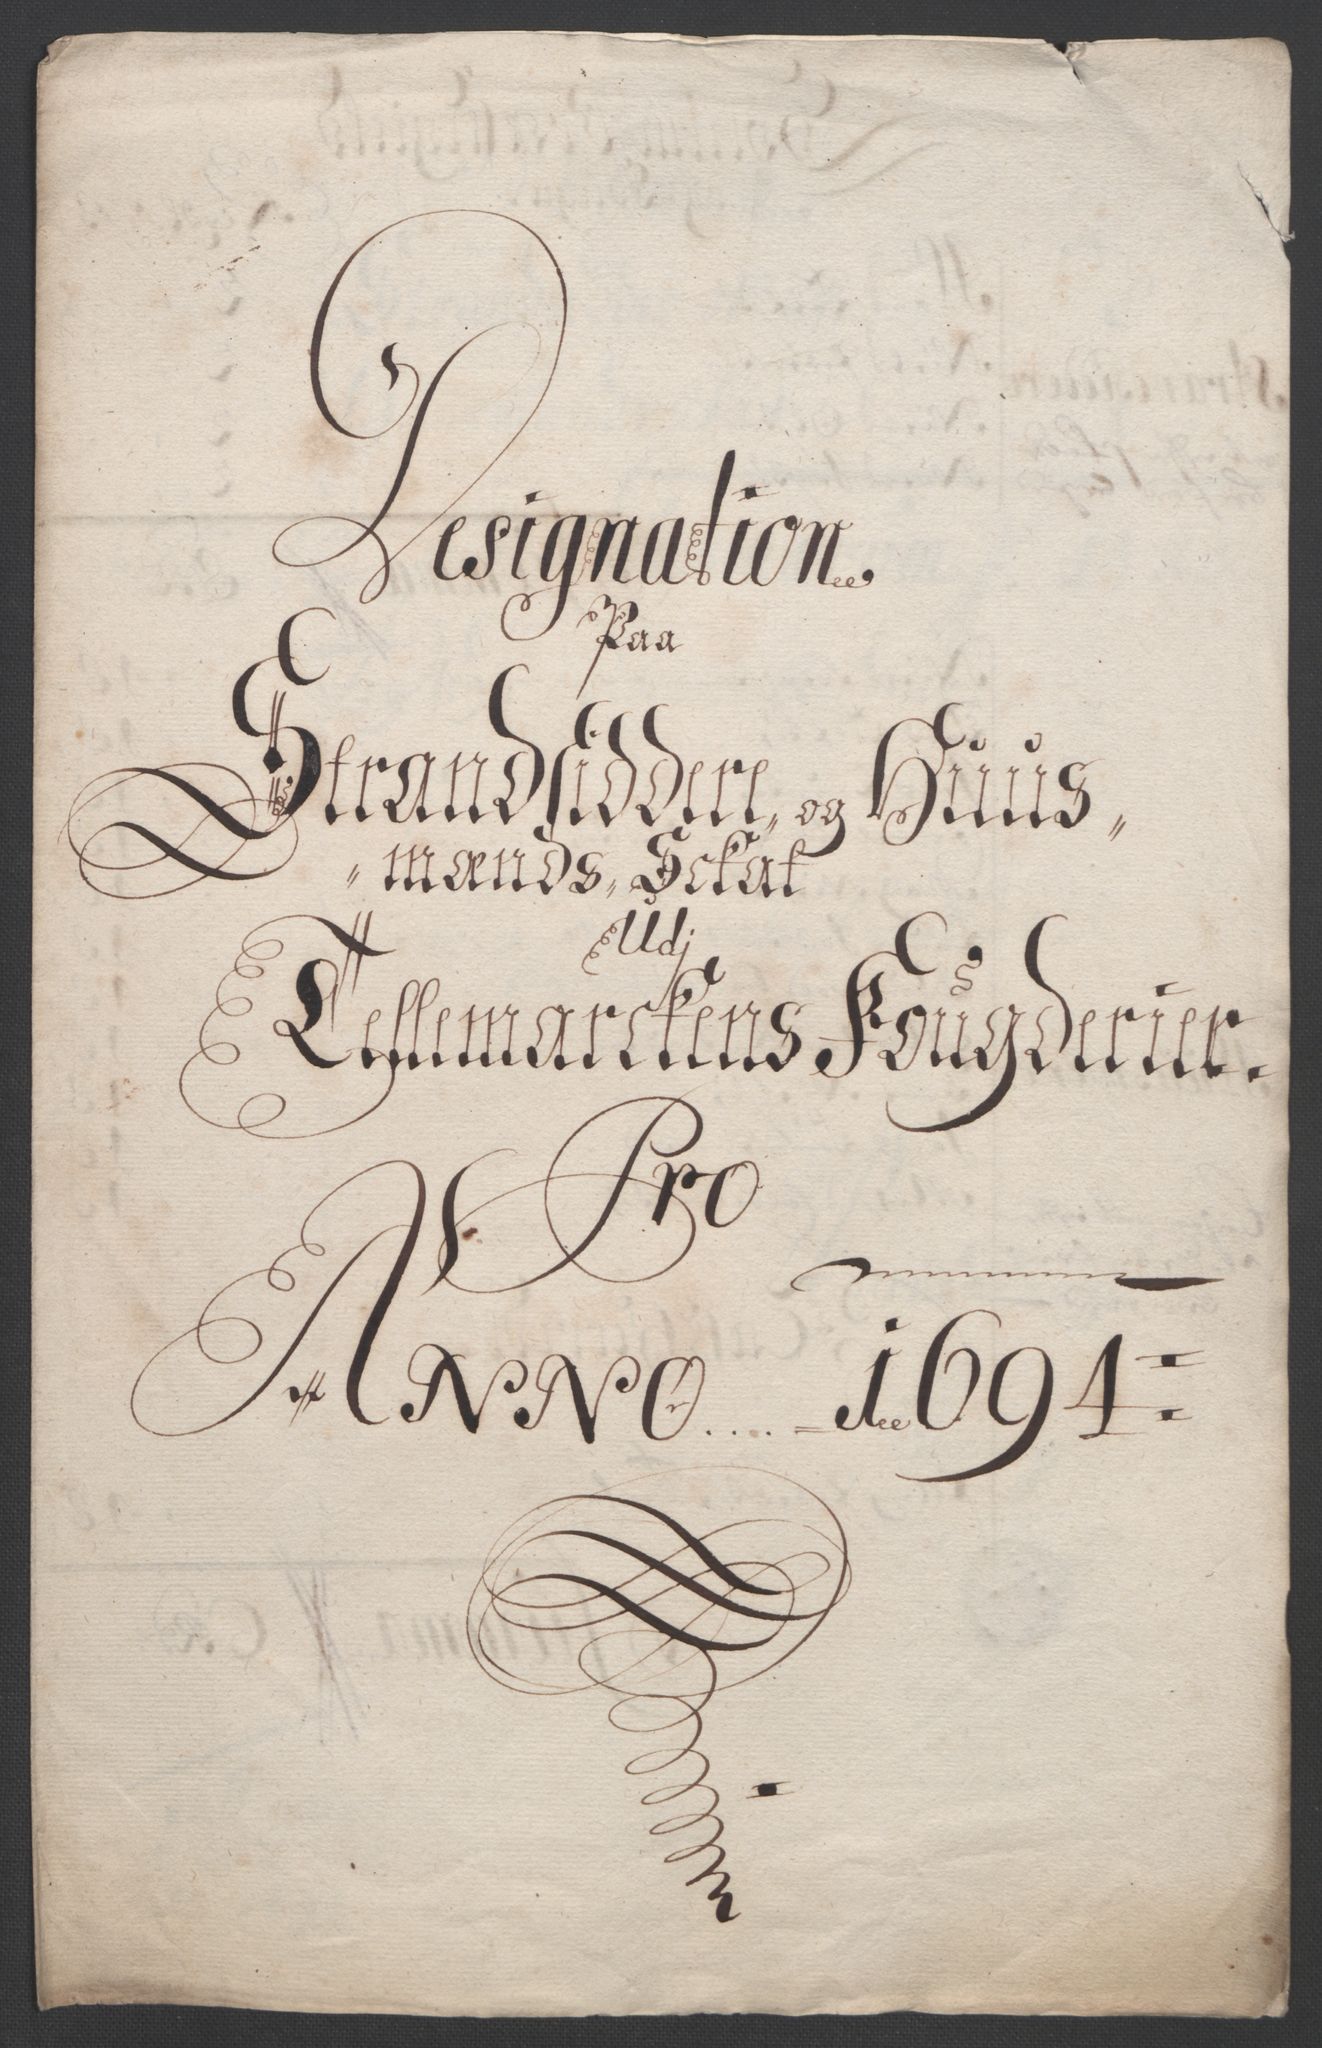 Designation.
Paa
Strandsiddere, og Huus,,
,,mænds,, Sckat
Udj
Tellemarckens Fougderier.
Pro
ANNO .... 1694: